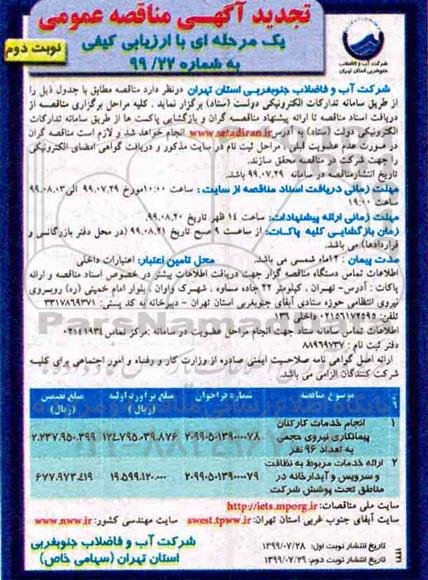 تجدید آگهی مناقصه عمومی
یک مرحله ای با ارزیابی کیفی
به شماره ۹۹/۲۷
نوبت دوم
شرکت آب و فاضلاب
جنوبغربی استان تهران
شرکت آب و فاضلاب جنوبغربی استان تهران درنظر دارد مناقصه مطابق با جدول ذیل را
از طریق سامانه تدارکات الکترونیکی دولت (ستاد) برگزار نماید . کلیه مراحل برگزاری مناقصه از
دریافت اسناد مناقصه تا ارائه پیشنهاد مناقصه گران و بازگشایی پاکت ها از طریق سامانه تدارکات
الکترونیکی دولت (ستاد) به آدرس www.setadiran.ir انجام خواهد شد و لازم است مناقصه گران
در صورت عدم عضویت قبلی ، مراحل ثبت نام در سایت مذکور و دریافت گواهی امضای الکترونیکی
را جهت شرکت در مناقصه محقق سازند.
تاریخ انتشارمناقصه در سامانه ۹۹.۰۷.۲۹ باشد
مهلت زمانی دریافت اسناد مناقصه از سایت : ساعت ۱۰:۰۰ مورخ ۹۹.۰۷.۲۹ الی ۹۹.۰۸.۰۳
ساعت ۱۹:۰۰
مهلت زمانی ارائه پیشنهادات: ساعت ۱۴ ظهر تاریخ ۹۹.۰۸.۲۰.
زمان بازگشایی کلیه پاکات: از ساعت ۹ صبح تاریخ ۹۹.۰۸.۲۱ (در محل دفتر بازرگانی و
قراردادها) می باشد.
مدت پیمان : ۱۲ماه شمسی می باشد. محل تامین اعتبار: اعتبارات داخلی
اطلاعات تماس دستگاه مناقصه گزار جهت دریافت اطلاعات بیشتر در خصوص اسناد مناقصه و ارائه
پاکات : آدرس- تهران ، کیلومتر ۲۲ جاده ساوه ، شهرک واوان ، بلوار امام خمینی (ره) روبروی
نیروی انتظامی حوزه ستادی آبفای جنوبغربی استان تهران - دبیرخانه به کد پستی: ۳۳۱۷۸۶۹۳۷۱
تلفن: ۰۲۱۵۶۱۷۲۵۹۵ داخلی ۱۳۶
اطلاعات تماس سامانه ستاد جهت انجام مراحل عضویت در سامانه :مرکز تماس ۰۲۱۴۱۹۳۴
دفتر ثبت نام : ۸۸۹۶۹۷۳۷
ارائه اصل گواهی نامه صلاحیت ایمنی صادره از وزارت کار و رفاه و امور اجتماعی برای کلیه
شرکت کنندگان الزامی می باشد.
موضوع مناقصه شماره فراخوان مبلغ برآورد اولیه (ریال) مبلغ تضمین (ریال)
۱ انجام خدمات کارکنان پیمانکاری نیروی حجمی به تعداد ۹۶ نفر ۲۰۹۹۰۰۵۱۳۹۰۰۰۰۷۸ ۱۲۴.۷۹۵.۰۳۹.۸۷۶ ۲.۲۳۷.۹۵۰.۳۹۹
۲ ارائه خدمات مربوط به نظافت و سرویس و آبدارخانه در مناطق تحت پوشش شرکت ۲۰۹۹۰۰۵۱۳۹۰۰۰۰۷۹ ۱۹.۵۹۹.۱۲۰.۰۰۰ ۶۷۷.۹۷۳.۴۱۹
سایت ملی مناقصات: http://iets.mporg.ir
سایت آبفای جنوب غربی استان تهران: swest.tpww.ir سایت مهندسی کشور: www.nww.ir
تاریخ انتشار نوبت اول: ۱۳۹۹/۰۷/۲۸
تاریخ انتشار نوبت دوم: ۱۳۹۹/۰۷/۲۹
شرکت آب و فاضلاب جنوبغربی
استان تهران (سهامی خاص)